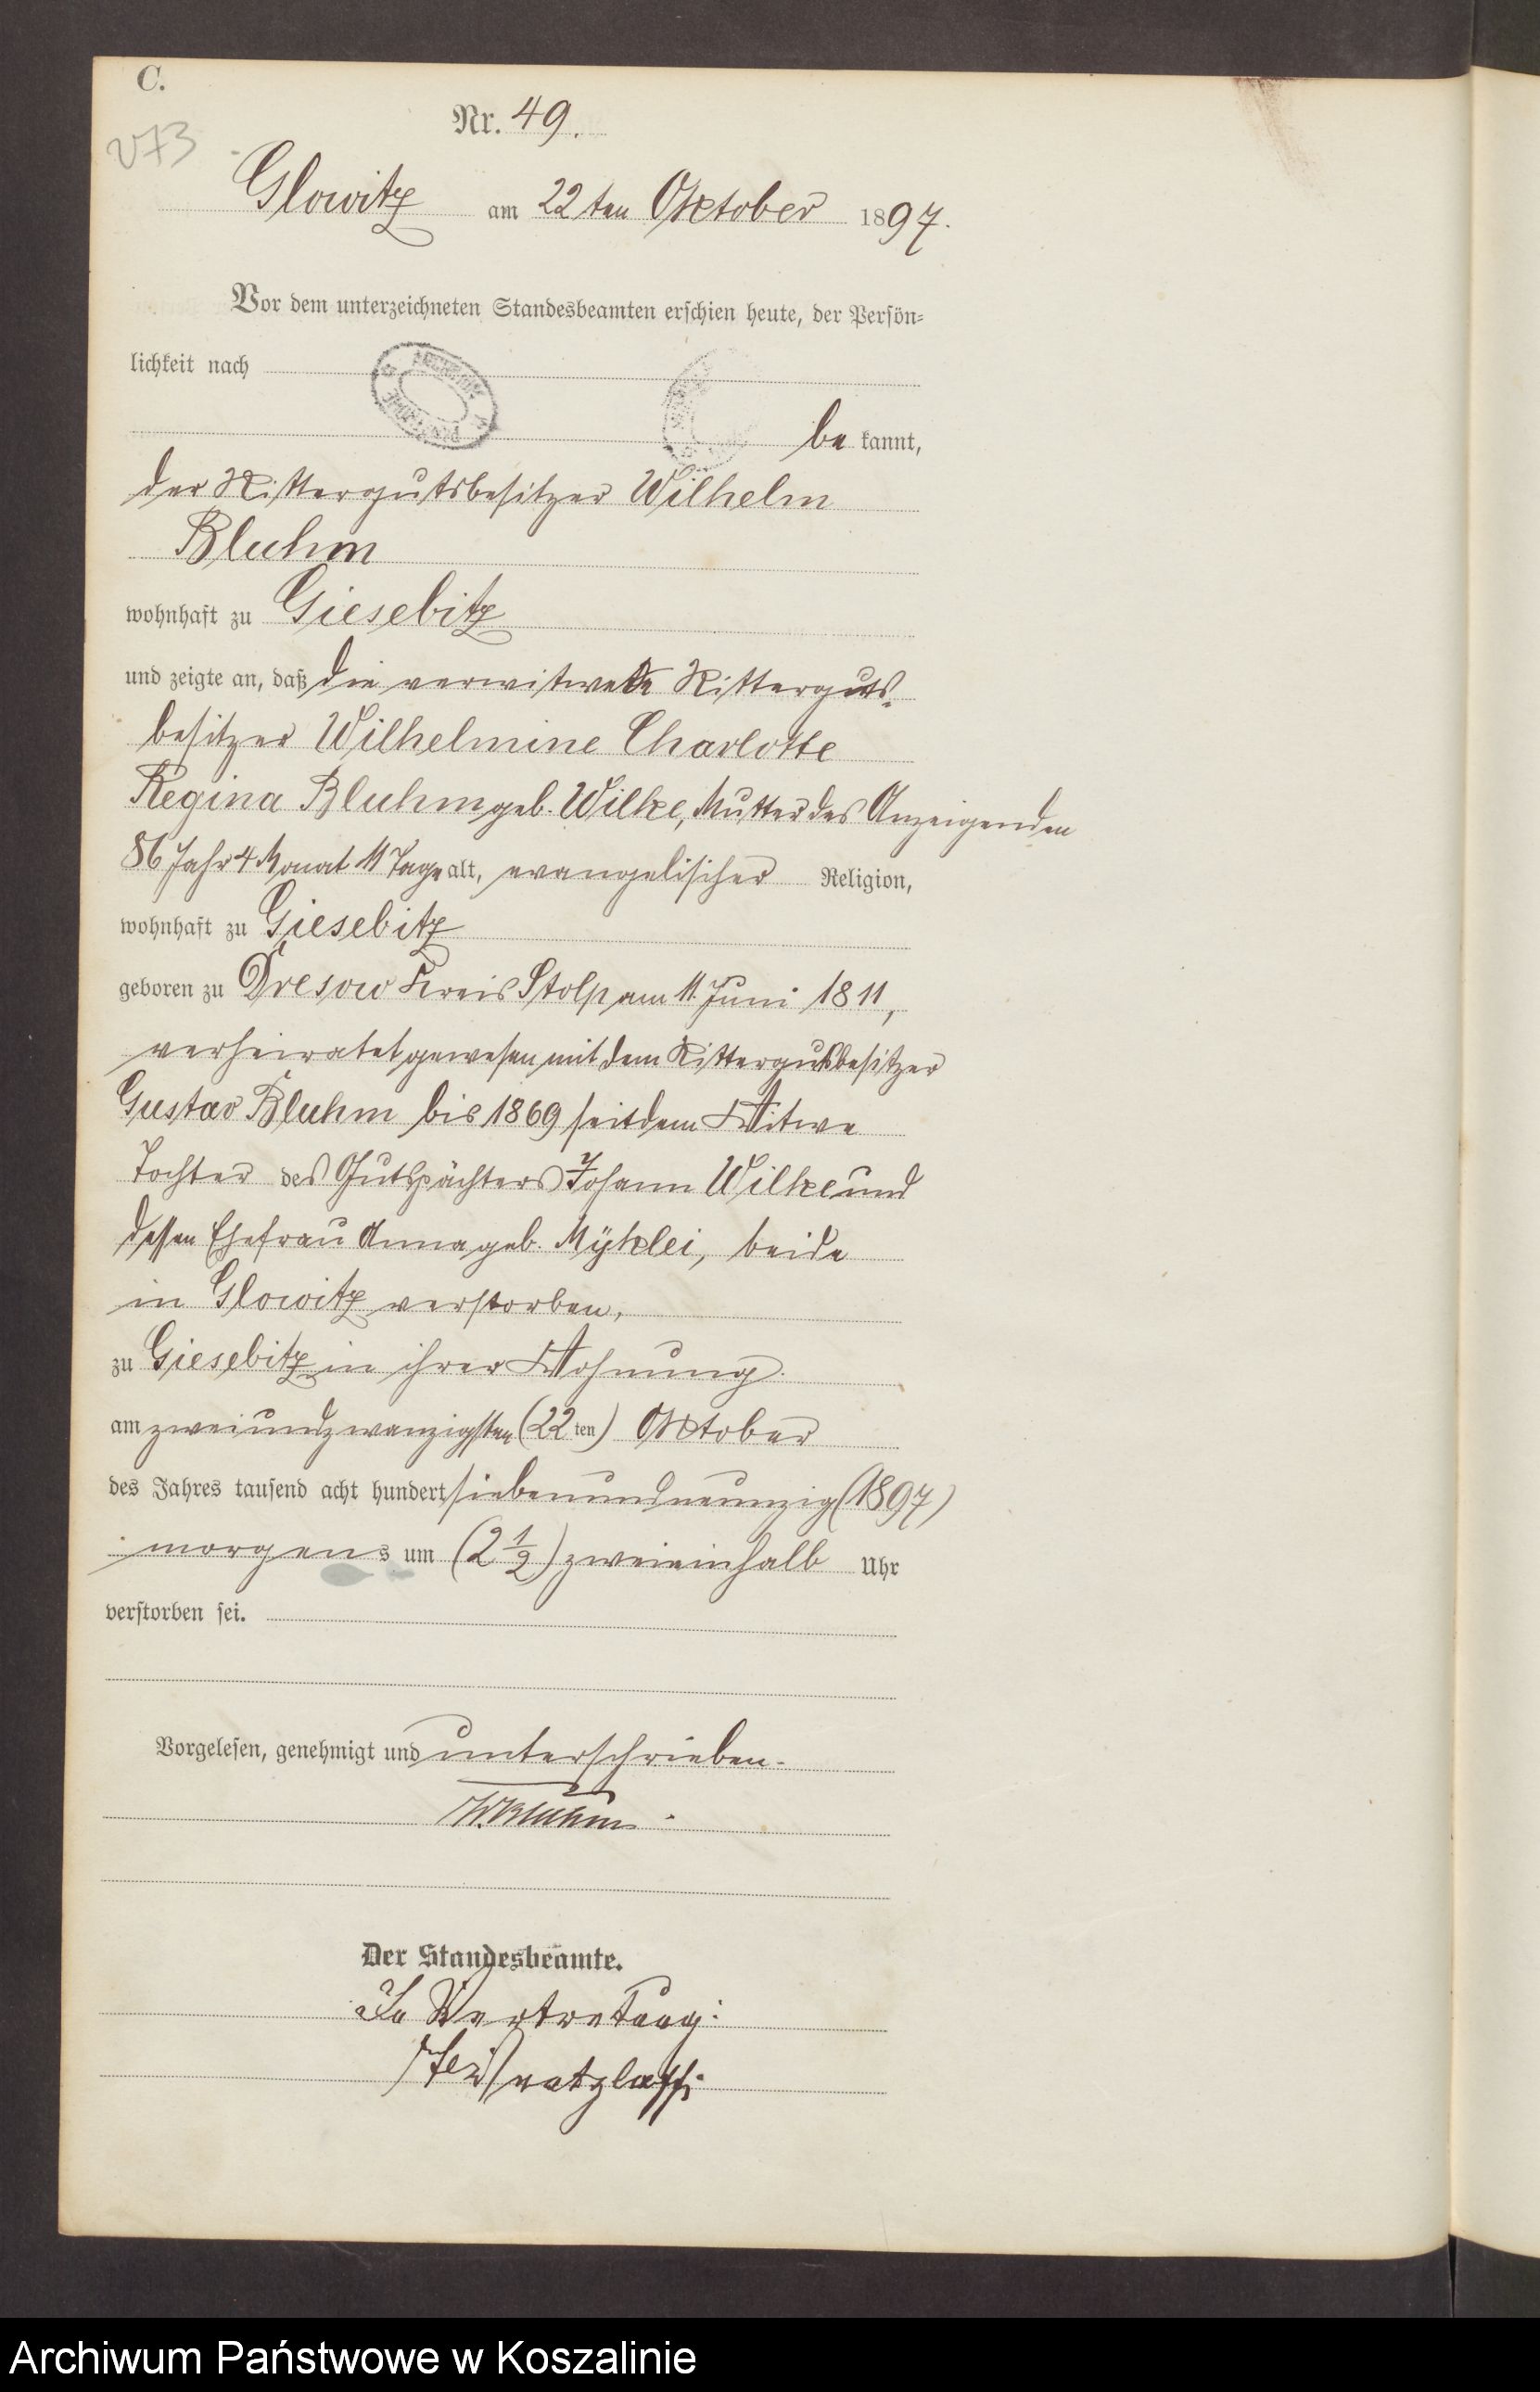 C.
Nr. 49.
273
Glowitz am 22ten Oktober 1897.
Vor dem unterzeichneten Standesbeamten erschien heute, der Persön-
lichkeit nach
be kannt,
der Rittergutsbesitzer Wilhelm
Bluhm
wohnhaft zu Giesebitz
und zeigte an, daß die verwitwete Ritterguts-
besitzer Wilhelmine Charlotte
Regina Bluhm geb. Wilke, Mutter des Anzeigenden
86 Jahr 4 Monat 11 Tage alt, evangelischer Religion,
wohnhaft zu Giesebitz
geboren zu Dresow Kreis Stolp am 11. Juni 1811,
verheiratet gewesen mit dem Rittergutsbesitzer
Gustav Bluhm bis 1869 seitdem Witwe
Tochter des Gutspächters Johann Wilke und
dessen Ehefrau Anna geb. Mÿklei, beide
in Glowitz verstorben,
zu Giesebitz in ihrer Wohnung.
am zweiundzwanzigsten (22ten) Oktober
des Jahres tausend acht hundert siebenundneunzig (1897)
morgens um (2 1/2) zweieinhalb Uhr
verstorben sei.
Vorgelesen, genehmigt und unterschrieben.
W. Bluhm.
Der Standesbeamte.
In Vertretung:
Archiwum Państwowe w Koszalinie